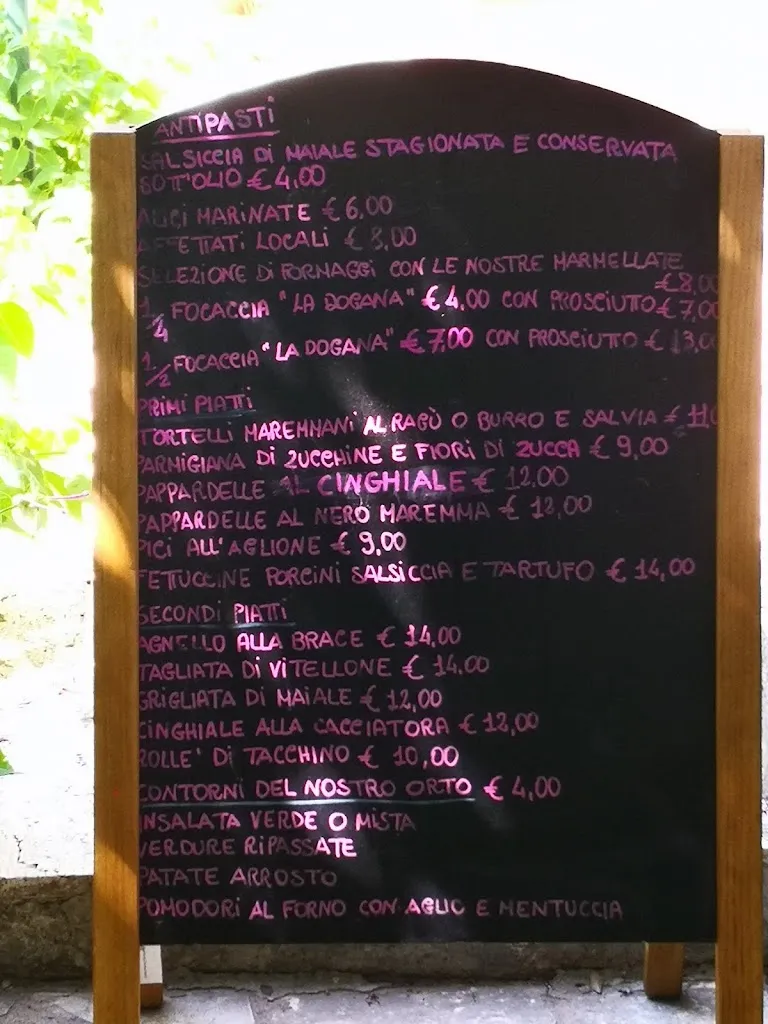 ANTIPASTI
SALSICCIA DI MAIALE STAGIONATA E CONSERVATA
SOTT'OLIO € 4,00
ALICI MARINATE € 6,00
AFFETTATI LOCALI € 8,00
SELEZIONE DI FORMAGGI CON LE NOSTRE MARMELLATE
€ 8,00
1/4 FOCACCIA "LA DOGANA" € 4,00 CON PROSCIUTTO € 7,00
1/2 FOCACCIA "LA DOGANA" € 7,00 CON PROSCIUTTO € 13,00
PRIMI PIATTI
TORTELLI MAREMMANI AL RAGÙ O BURRO E SALVIA €
PARMIGIANA DI ZUCCHINE E FIORI DI ZUCCA € 9,00
PAPPARDELLE AL CINGHIALE € 12,00
PAPPARDELLE AL NERO MAREMMA € 12,00
PICI ALL'AGLIONE € 9,00
FETTUCCINE PORCINI SALSICCIA E TARTUFO € 14,00
SECONDI PIATTI
AGNELLO ALLA BRACE € 14,00
TAGLIATA DI VITELLONE € 14,00
GRIGLIATA DI MAIALE € 12,00
CINGHIALE ALLA CACCIATORA € 12,00
ROLLE' DI TACCHINO € 10,00
CONTORNI DEL NOSTRO ORTO € 4,00
INSALATA VERDE O MISTA
VERDURE RIPASSATE
PATATE ARROSTO
POMODORI AL FORNO CON AGLIO E MENTUCCIA